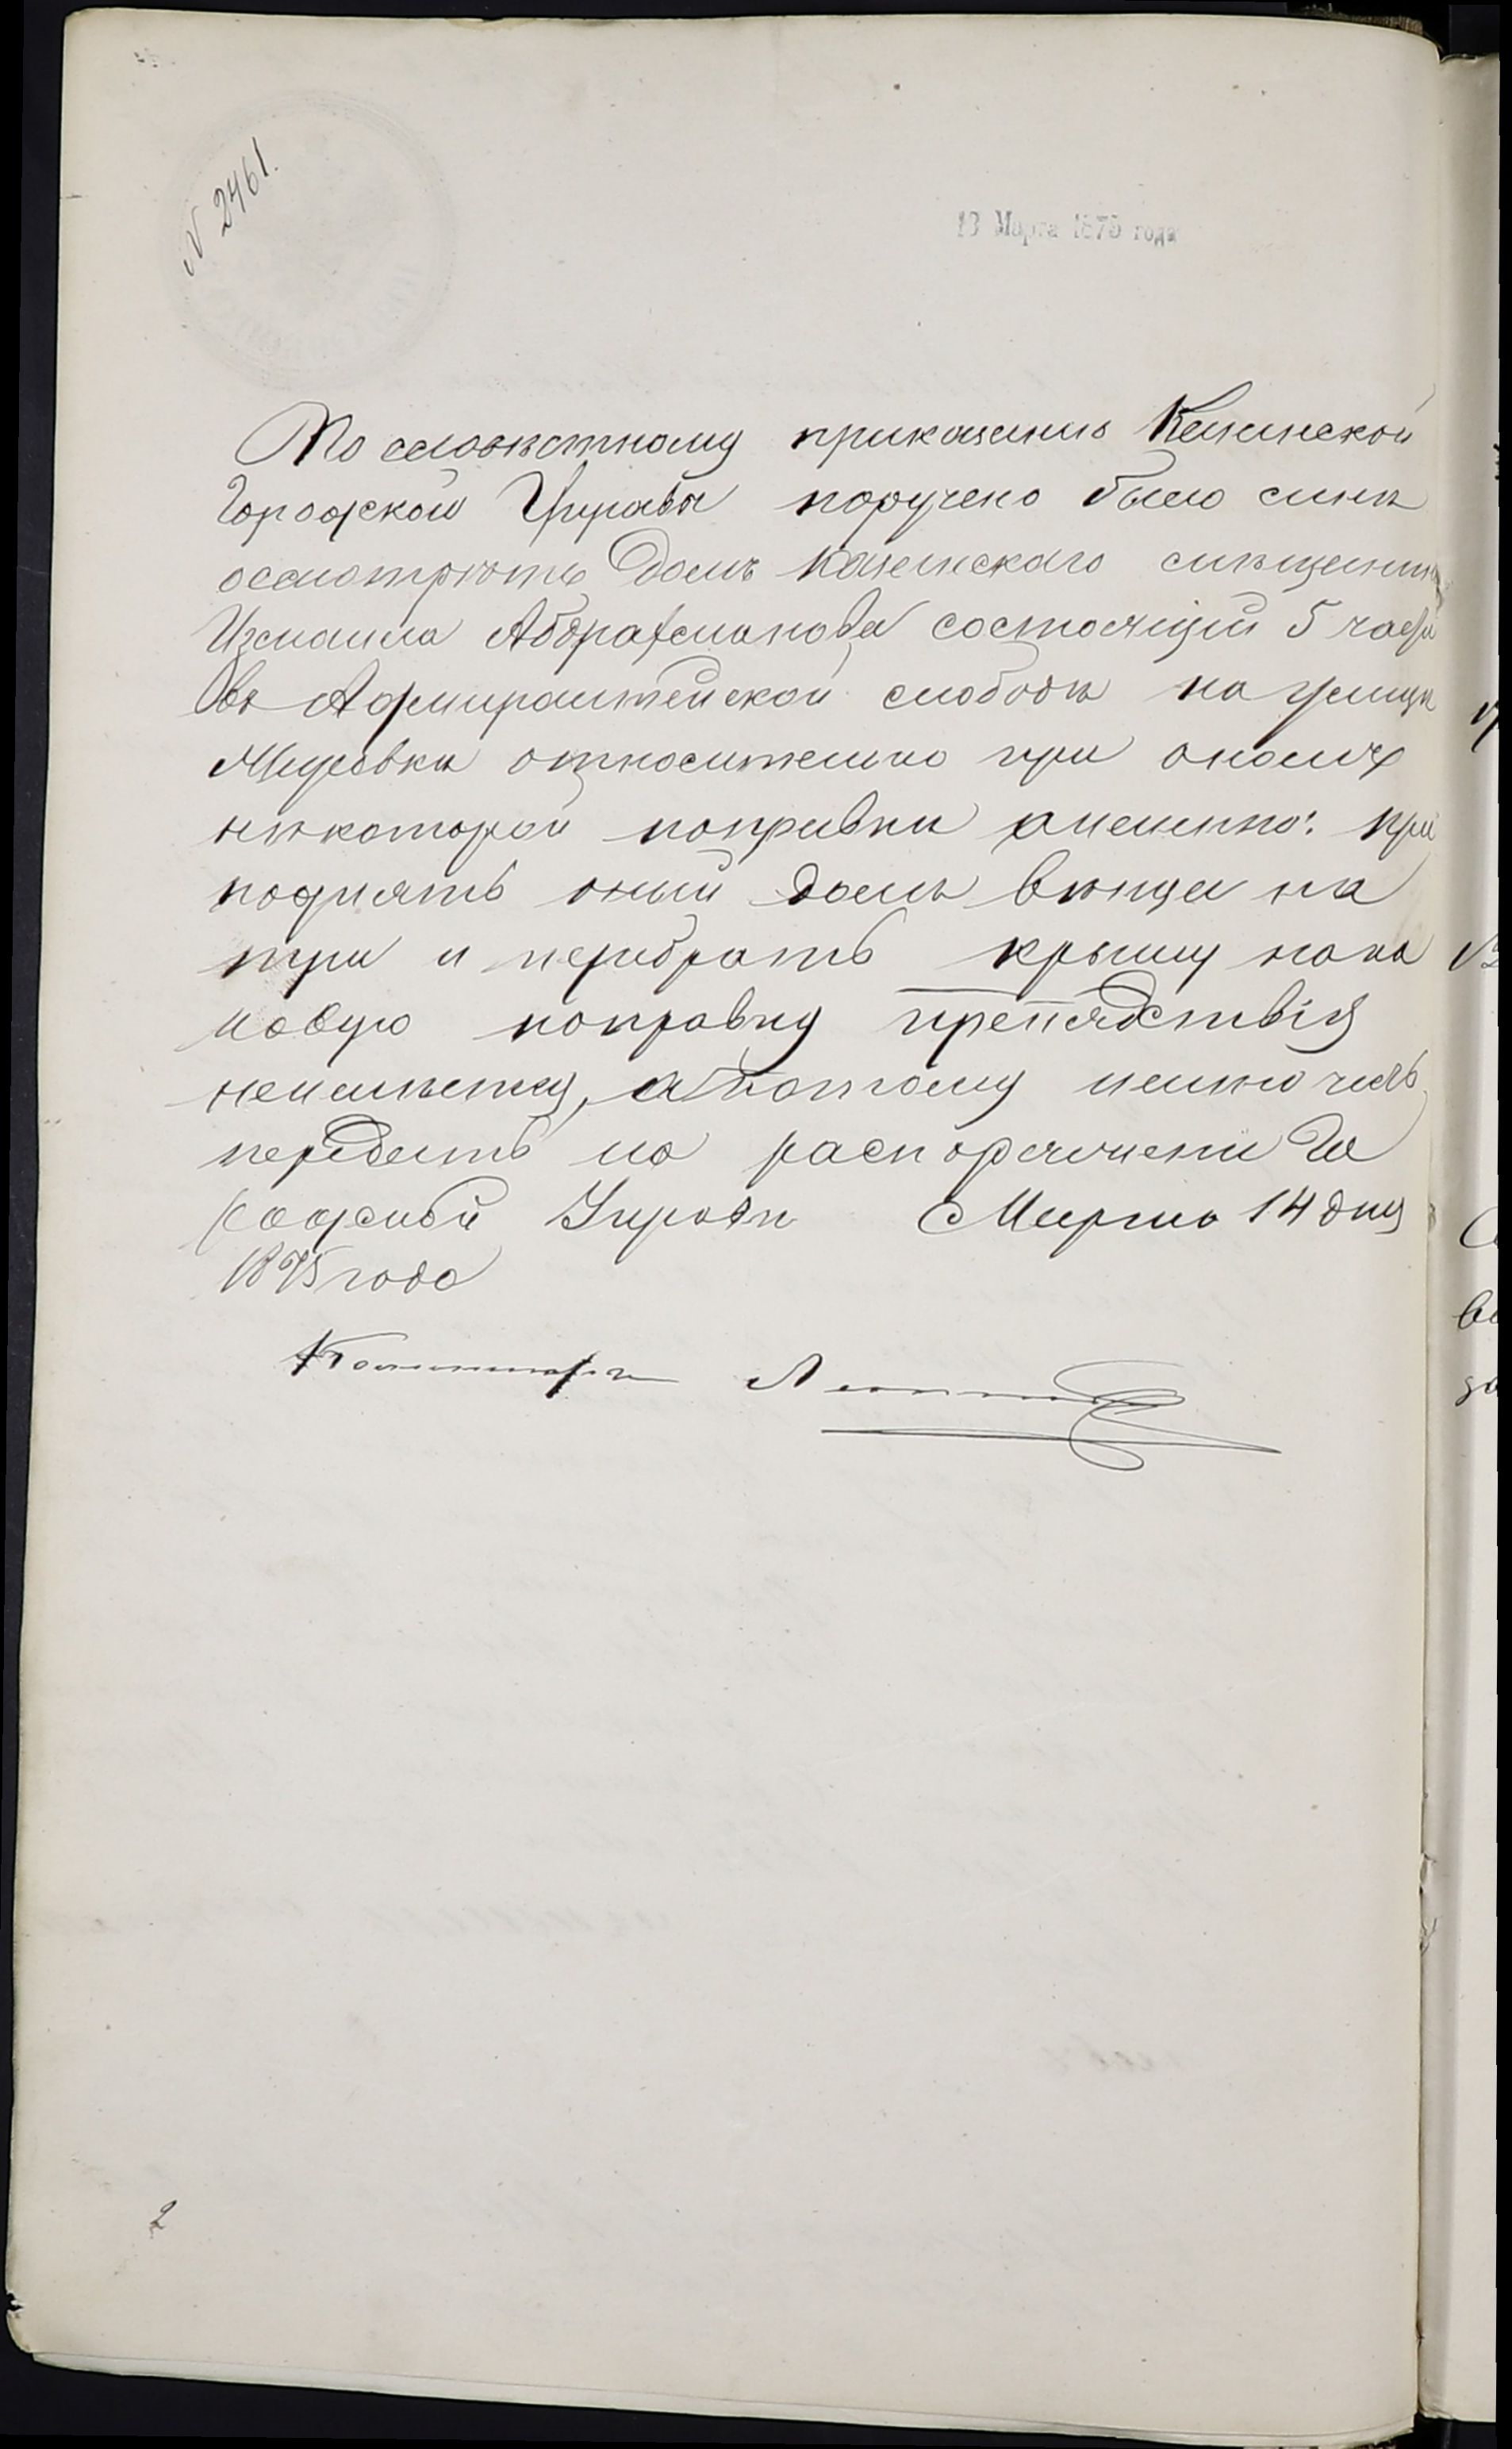 N 2461.
13 Марта 1875 года
По словѣстному приказанію Казанской
Городской Управы поручено было мнѣ
осмотрѣть домъ казанскаго
Исмаила Абдрахманова состоящій 5 части
въ Адмиралтейской слободѣ на улицѣ
относительно при ономъ
нѣкоторой поправки аименно: при
поднять оный домъ вѣнца на
три и перебрать крышу нака
новую поправку препядствія
неимѣетца, апотому имею честь
передать на распоряжени Го
родской Управы Марта 14 дня
1875 года
2